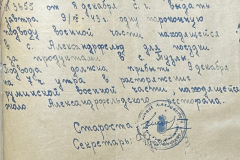 3455 от 8 декабря с.г. выдать
завтра 9/XII-43г. одну пароконную
подводу воинской части находящейся
в с. Александрфельд для поездки
за продуктами в с.
Подвода должна прибыть 9 декабря
на 7 ч утра в распоряжение
румынской воинской части, находящейся
около Александрфельдского ресторана.
Староста
Секретарь: